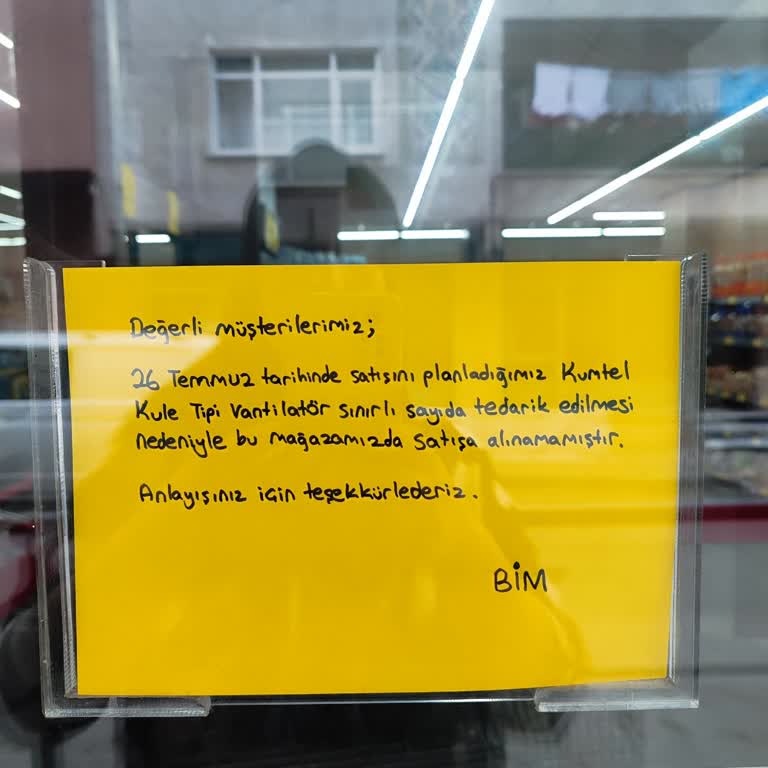 Değerli müşterilerimiz;
26 Temmuz tarihinde satışını planladığımız Kumtel
Kule Tipi Vantilatör sınırlı sayıda tedarik edilmesi
nedeniyle bu mağazamızda satışa alınamamıştır.
Anlayışınız için teşekkürlederiz.
BİM